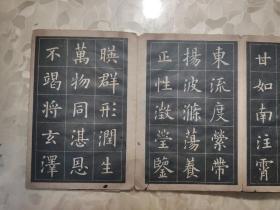 甘如南注霄
東流度縈帶
揚波滌蕩養
正性澂瑩鑒
暎群形潤生
萬物同湛恩
不竭将玄澤